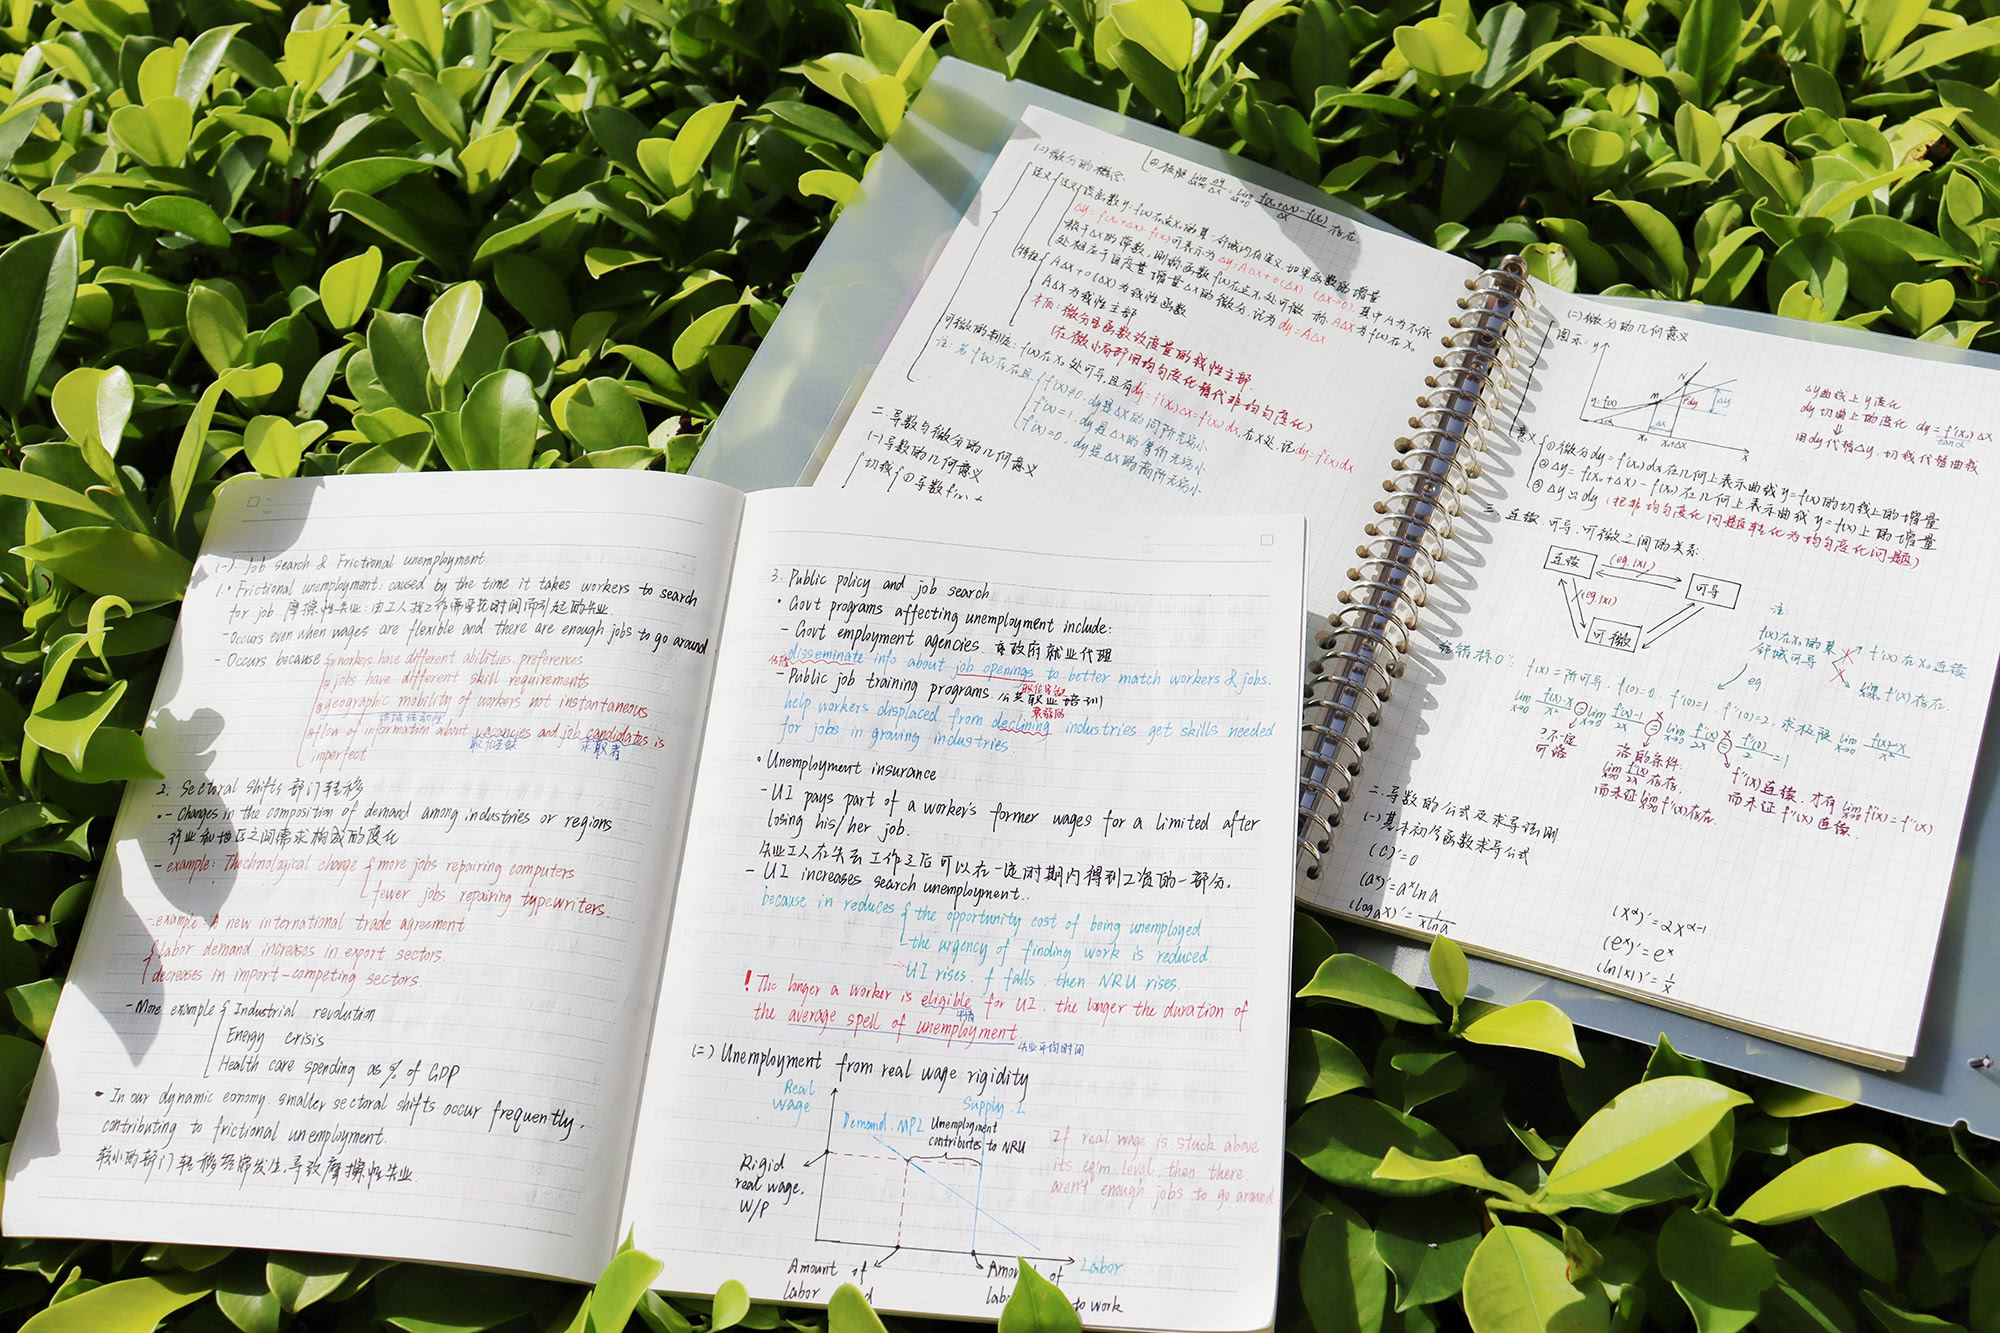 (一) Job search & Frictional unemployment
1. • Frictional unemployment: caused by the time it takes workers to search
for job. 摩擦性失业:由工人找工作需要花时间而引起的失业.
- Occurs even when wages are flexible and there are enough jobs to go around.
- Occurs because ① workers have different abilities. preferences
② jobs have different skill requirements
③ geographic mobility of workers not instantaneous
地域流动性
④ flow of information about vacancies and job candidates is
职位空缺 求职者
imperfect
2. Sectoral shifts 部门转移
• - Changes in the composition of demand among industries or regions
行业和地区之间需求构成的变化
- example: Thechnological change { more jobs repairing computers
fewer jobs repairing typewriters.
- example: A new international trade agreement
labor demand increases in export sectors.
decreases in import-competing sectors.
- More example { Industrial revolution
Energy crisis
Health care spending as % of GDP
• In our dynamic eonomy. smaller sectoral shifts occur frequently,
contributing to frictional unemployment.
较小的部门转移经常发生,导致摩擦性失业.
3. Public policy and job search
• Govt programs affecting unemployment include:
- Govt employment agencies. 政府就业代理
disseminate info about job openings to better match workers & jobs.
- Public job training programs 公共职业培训
help workers displaced from declining industries get skills needed
for jobs in growing industries.
• Unemployment insurance
- UI pays part of a worker's former wages for a limited after
losing his/her job.
失业工人在失去工作之后可以在一定时期内得到工资的一部分.
- UI increases search unemployment..
because in reduces { the opportunity cost of being unemployed
the urgency of finding work is reduced.
→ UI rises. f falls. then NRU rises.
! The longer a worker is eligible for UI. the longer the duration of
the average spell of unemployment.
失业平均时间
(二) Unemployment from real wage rigidity
Real
wage
Supply. L
Demand. MPL
Unemployment
contributes to NRU
Rigid
real wage.
W/P
If real wage is stuck above
its eq'm level, then there
aren't enough jobs to go around
Labor
Amount of
labor
to work
(二) 微分的概念
② 极限 lim Δx→0 Δy/Δx = lim Δx→0 f(x₀+Δx)-f(x₀)/Δx 存在.
定义 { 设函数y=f(x)在点x₀的某一邻域内有定义,如果函数的增量
Δy=f(x₀+Δx)-f(x₀)可表示为Δy=AΔx+o(Δx) (Δx→0), 其中A为不依
赖于Δx的常数,则称函数f(x)在点x₀处可微. 称AΔx为f(x)在x₀
处相应于自变量增量Δx的微分,记为dy=AΔx
特征 { AΔx+o(Δx)为线性函数
AΔx为线性主部
本质:微分是函数改变量的线性主部.
(在微小局部用均匀变化替代非均匀变化)
可微的判定: f(x)在x₀处可导,且有dy=f'(x)Δx=f'(x)dx,在x处,记dy=f'(x)dx
注: 若f'(x)存在且 { f'(x)≠0. dy是Δx的同阶无穷小
f'(x)=1. dy是Δx的等价无穷小
f'(x)=0. dy是Δx的高阶无穷小
二. 导数与微分的几何意义
(一) 导数的几何意义
切线 { ① 导数f'(x₀)
(二) 微分的几何意义
图示: y
N
M
dy
Δy
y=f(x)
Δx
x₀
x₀+Δx
x
Δy曲线上y变化
dy切曲上的变化 dy=f'(x₀)Δx
tanα
用dy代替Δy. 切线代替曲线
意义 { ① 微分dy=f'(x₀)dx在几何上表示曲线y=f(x)的切线上的增量
② Δy=f(x₀+Δx)-f(x₀)在几何上表示曲线y=f(x)上的增量
③ Δy≈dy (把非均匀变化问题转化为均匀变化问题)
三. 连续、可导、可微之间的关系:
连续
(eg.|x|)
可导
(eg.|x|)
可微
注:
f(x)在x₀的某
邻域可导
f'(x)在x₀连续
f'(x)存在.
eg
f(x)=阶可导. f(0)=0. f'(0)=1. f''(0)=2. 求极限 lim x→0 f(x)-x/x²
lim x→0 f(x)-x/x² = lim x→0 f'(x)-1/2x = lim x→0 f''(x)/2 = f''(0)/2 = 1
洛的条件:
f''(x)连续,才有lim x→0 f''(x)=f''(x)
而未证 f''(x)连续.
二. 导数的公式及求导法则
(一) 基本初等函数求导公式
(C)'=0
(aˣ)'=aˣlna
(logₐx)'=1/xlna
(xᵅ)'=αxᵅ⁻¹
(eˣ)'=eˣ
(ln|x|)'=1/x